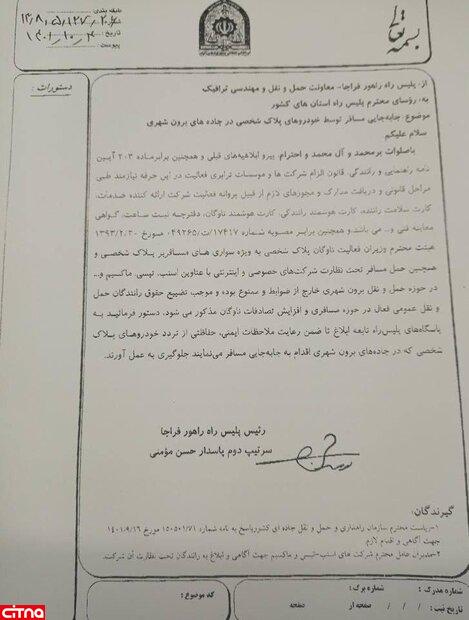 بسمه تعالی
طبقه بندی :
شماره :
تاریخ : ۱۴۰۱/۱۰/۴
پیوست :
دستورات :
از: پلیس راه راهور فراجا- معاونت حمل و نقل و مهندسی ترافیک
به: رؤسای محترم پلیس راه استان های کشور
موضوع: جابه‌جایی مسافر توسط خودروهای پلاک شخصی در جاده های برون شهری
سلام علیکم
باصلوات برمحمد و آل محمد و احترام، پیرو ابلاغیه‌های قبلی و همچنین برابرماده ۲۰۳ آیین
نامه راهنمایی و رانندگی، قانون الزام شرکت ها و موسسات ترابری فعالیت در این حرفه نیازمند طی
مراحل قانونی و دریافت مدارک و مجوزهای لازم از قبیل پروانه فعالیت شرکت ارائه کننده خدمات،
کارت سلامت راننده، کارت هوشمند رانندگی، کارت هوشمند ناوگان، دفترچه ثبت ساعت، گواهی
معاینه فنی و... می باشد.و همچنین برابر مصوبه شماره ۱۷۴۱۷/ت۴۹۲۶۵ه مورخ ۱۳۹۳/۲/۳۰
هیئت محترم وزیران فعالیت ناوگان پلاک شخصی به ویژه سواری های مسافربر پلاک شخصی و
همچنین حمل مسافر تحت نظارت شرکت‌های خصوصی و اینترنتی با عناوین اسنپ، تپسی، ماکسیم و...
در حوزه حمل و نقل برون شهری خارج از ضوابط و ممنوع بوده و موجب تضییع حقوق رانندگان حمل
و نقل عمومی فعال در حوزه مسافری و افزایش تصادفات ناوگان مذکور می شود. دستور فرمائید به
پاسگاه‌های پلیس‌راه تابعه ابلاغ تا ضمن رعایت ملاحظات ایمنی، حفاظتی از تردد خودروهای پلاک
شخصی که در جاده‌های برون شهری اقدام به جابه‌جایی مسافر می‌نمایند جلوگیری به عمل آورند.
رئیس پلیس راه راهور فراجا
سرتیپ دوم پاسدار حسن مؤمنی
گیرندگان:
۱-ریاست محترم سازمان راهداری و حمل و نقل جاده ای کشورپاسخ به نامه شماره ۱۵۰۵۰۱/۷۱ مورخ ۱۴۰۱/۹/۱۶
جهت آگاهی و اقدام لازم.
۲-مدیران عامل محترم شرکت های اسنپ-تپسی و ماکسیم جهت آگاهی و ابلاغ به رانندگان تحت نظارت آن شرکت.
شماره مدرک : شماره برگ :
تاریخ ثبت : / / / صفحه از صفحه
کد موضوع :
citna